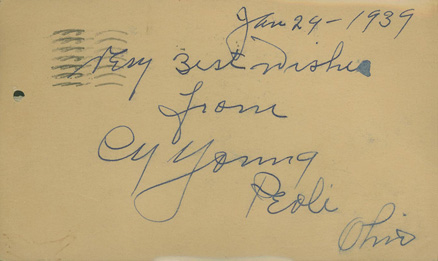 Jan 29-1939
Very Best wishes
from
Cy Young
Peoli
Ohio